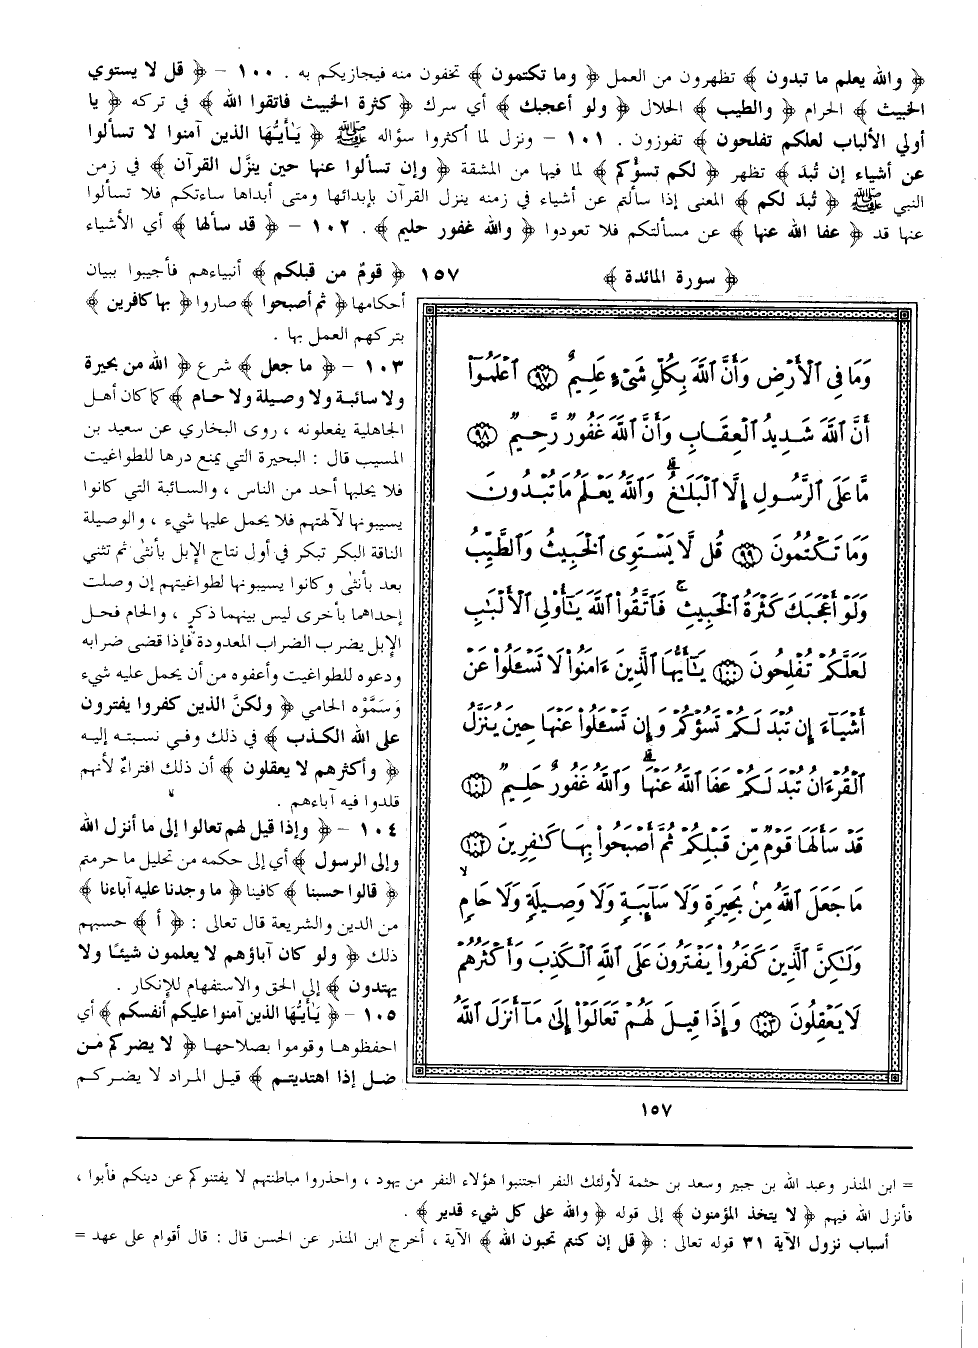 ﴿ والله يعلم ما تبدون ﴾ تظهرون من العمل ﴿ وما تكتمون ﴾ تخفون منه فيجازيكم به . ١٠٠ – ﴿ قل لا يستوي
الخبيث ﴾ الحرام ﴿ والطيب ﴾ الحلال ﴿ ولو أعجبك ﴾ أي سرك ﴿ كثرة الخبيث فاتقوا الله ﴾ في تركه ﴿ يا
أولي الألباب لعلكم تفلحون ﴾ تفوزون . ١٠١ – ونزل لما أكثروا سؤاله ﷺ ﴿ يَأيُّهَا الذين آمنوا لا تسألوا
عن أشياء إن تُبدَ ﴾ تظهر ﴿ لكم تسؤُكم ﴾ لما فيها من المشقة ﴿ وإن تسألوا عنها حين ينزَّل القرآن ﴾ في زمن
النبي ﷺ ﴿ تُبدَ لكم ﴾ المعنى إذا سألتم عن أشياء في زمنه ينزل القرآن بإبدائها ومتى أبداها ساءتكم فلا تسألوا
عنها قد ﴿ عفا الله عنها ﴾ عن مسألتكم فلا تعودوا ﴿ والله غفور حليم ﴾ . ١٠٢ – ﴿ قد سألها ﴾ أي الأشياء
﴿ سورة المائدة ﴾ ١٥٧
وَمَا فِي ٱلْأَرْضِ وَأَنَّ ٱللَّهَ بِكُلِّ شَيْءٍ عَلِيمٌ ٩٧ ٱعْلَمُوٓا۟
أَنَّ ٱللَّهَ شَدِيدُ ٱلْعِقَابِ وَأَنَّ ٱللَّهَ غَفُورٌ رَّحِيمٌ ٩٨
مَّا عَلَى ٱلرَّسُولِ إِلَّا ٱلْبَلَٰغُ ۗ وَٱللَّهُ يَعْلَمُ مَا تُبْدُونَ
وَمَا تَكْتُمُونَ ٩٩ قُل لَّا يَسْتَوِى ٱلْخَبِيثُ وَٱلطَّيِّبُ
وَلَوْ أَعْجَبَكَ كَثْرَةُ ٱلْخَبِيثِ ۚ فَٱتَّقُوا۟ ٱللَّهَ يَٰٓأُو۟لِى ٱلْأَلْبَٰبِ
لَعَلَّكُمْ تُفْلِحُونَ ١٠٠ يَٰٓأَيُّهَا ٱلَّذِينَ ءَامَنُوا۟ لَا تَسْـَٔلُوا۟ عَنْ
أَشْيَآءَ إِن تُبْدَ لَكُمْ تَسُؤْكُمْ وَإِن تَسْـَٔلُوا۟ عَنْهَا حِينَ يُنَزَّلُ
ٱلْقُرْءَانُ تُبْدَ لَكُمْ عَفَا ٱللَّهُ عَنْهَا ۗ وَٱللَّهُ غَفُورٌ حَلِيمٌ ١٠١
قَدْ سَأَلَهَا قَوْمٌ مِّن قَبْلِكُمْ ثُمَّ أَصْبَحُوا۟ بِهَا كَٰفِرِينَ ١٠٢
مَا جَعَلَ ٱللَّهُ مِنۢ بَحِيرَةٍ وَلَا سَآئِبَةٍ وَلَا وَصِيلَةٍ وَلَا حَامٍ ۙ
وَلَٰكِنَّ ٱلَّذِينَ كَفَرُوا۟ يَفْتَرُونَ عَلَى ٱللَّهِ ٱلْكَذِبَ وَأَكْثَرُهُمْ
لَا يَعْقِلُونَ ١٠٣ وَإِذَا قِيلَ لَهُمْ تَعَالَوْا۟ إِلَىٰ مَآ أَنزَلَ ٱللَّهُ
١٥٧
﴿ قومٌ من قبلكم ﴾ أنبياءهم فأجيبوا ببيان
أحكامها ﴿ ثم أصبحوا ﴾ صاروا ﴿ بها كافرين ﴾
بتركهم العمل بها .
١٠٣ – ﴿ ما جعل ﴾ شرع ﴿ الله من بحيرة
ولا سائبة ولا وصيلة ولا حام ﴾ كما كان أهل
الجاهلية يفعلونه ، روى البخاري عن سعيد بن
المسيب قال : البحيرة التي يمنع درها للطواغيت
فلا يحلبها أحد من الناس ، والسائبة التي كانوا
يسيبونها لآلهتهم فلا يحمل عليها شيء ، والوصيلة
الناقة البكر تبكر في أول نتاج الإبل بأنثى ثم تثني
بعد بأنثى وكانوا يسيبونها لطواغيتهم إن وصلت
إحداهما بأخرى ليس بينهما ذكر ، والحام فحل
الإبل يضرب الضراب المعدودة فإذا قضى ضرابه
ودعوه للطواغيت وأعفوه من أن يحمل عليه شيء
وَسَمَّوْه الحامي ﴿ ولكنَّ الذين كفروا يفترون
على الله الكذب ﴾ في ذلك وفي نسبته إليه
﴿ وأكثرهم لا يعقلون ﴾ أن ذلك افتراءٌ لأنهم
قلدوا فيه آباءهم .
١٠٤ – ﴿ وإذا قيل لهم تعالوا إلى ما أنزل الله
وإلى الرسول ﴾ أي إلى حكمه من تحليل ما حرمتم
﴿ قالوا حسبنا ﴾ كافينا ﴿ ما وجدنا عليه آباءنا ﴾
من الدين والشريعة قال تعالى : ﴿ أ ﴾ حسبهم
ذلك ﴿ ولو كان آباؤهم لا يعلمون شيئًا ولا
يهتدون ﴾ إلى الحق والاستفهام للإنكار .
١٠٥ – ﴿ يَأيُّهَا الذين آمنوا عليكم أنفسكم ﴾ أي
احفظوها وقوموا بصلاحها ﴿ لا يضركم مَن
ضل إذا اهتديتم ﴾ قيل المراد لا يضركم
= ابن المنذر وعبد الله بن جبير وسعد بن حثمة لأولئك النفر اجتنبوا هؤلاء النفر من يهود ، واحذروا مباطنتهم لا يفتنوكم عن دينكم فأبوا ،
فأنزل الله فيهم ﴿ لا يتخذ المؤمنون ﴾ إلى قوله ﴿ والله على كل شيء قدير ﴾ .
أسباب نزول الآية ٣١ قوله تعالى : ﴿ قل إن كنتم تحبون الله ﴾ الآية ، أخرج ابن المنذر عن الحسن قال : قال أقوام على عهد =